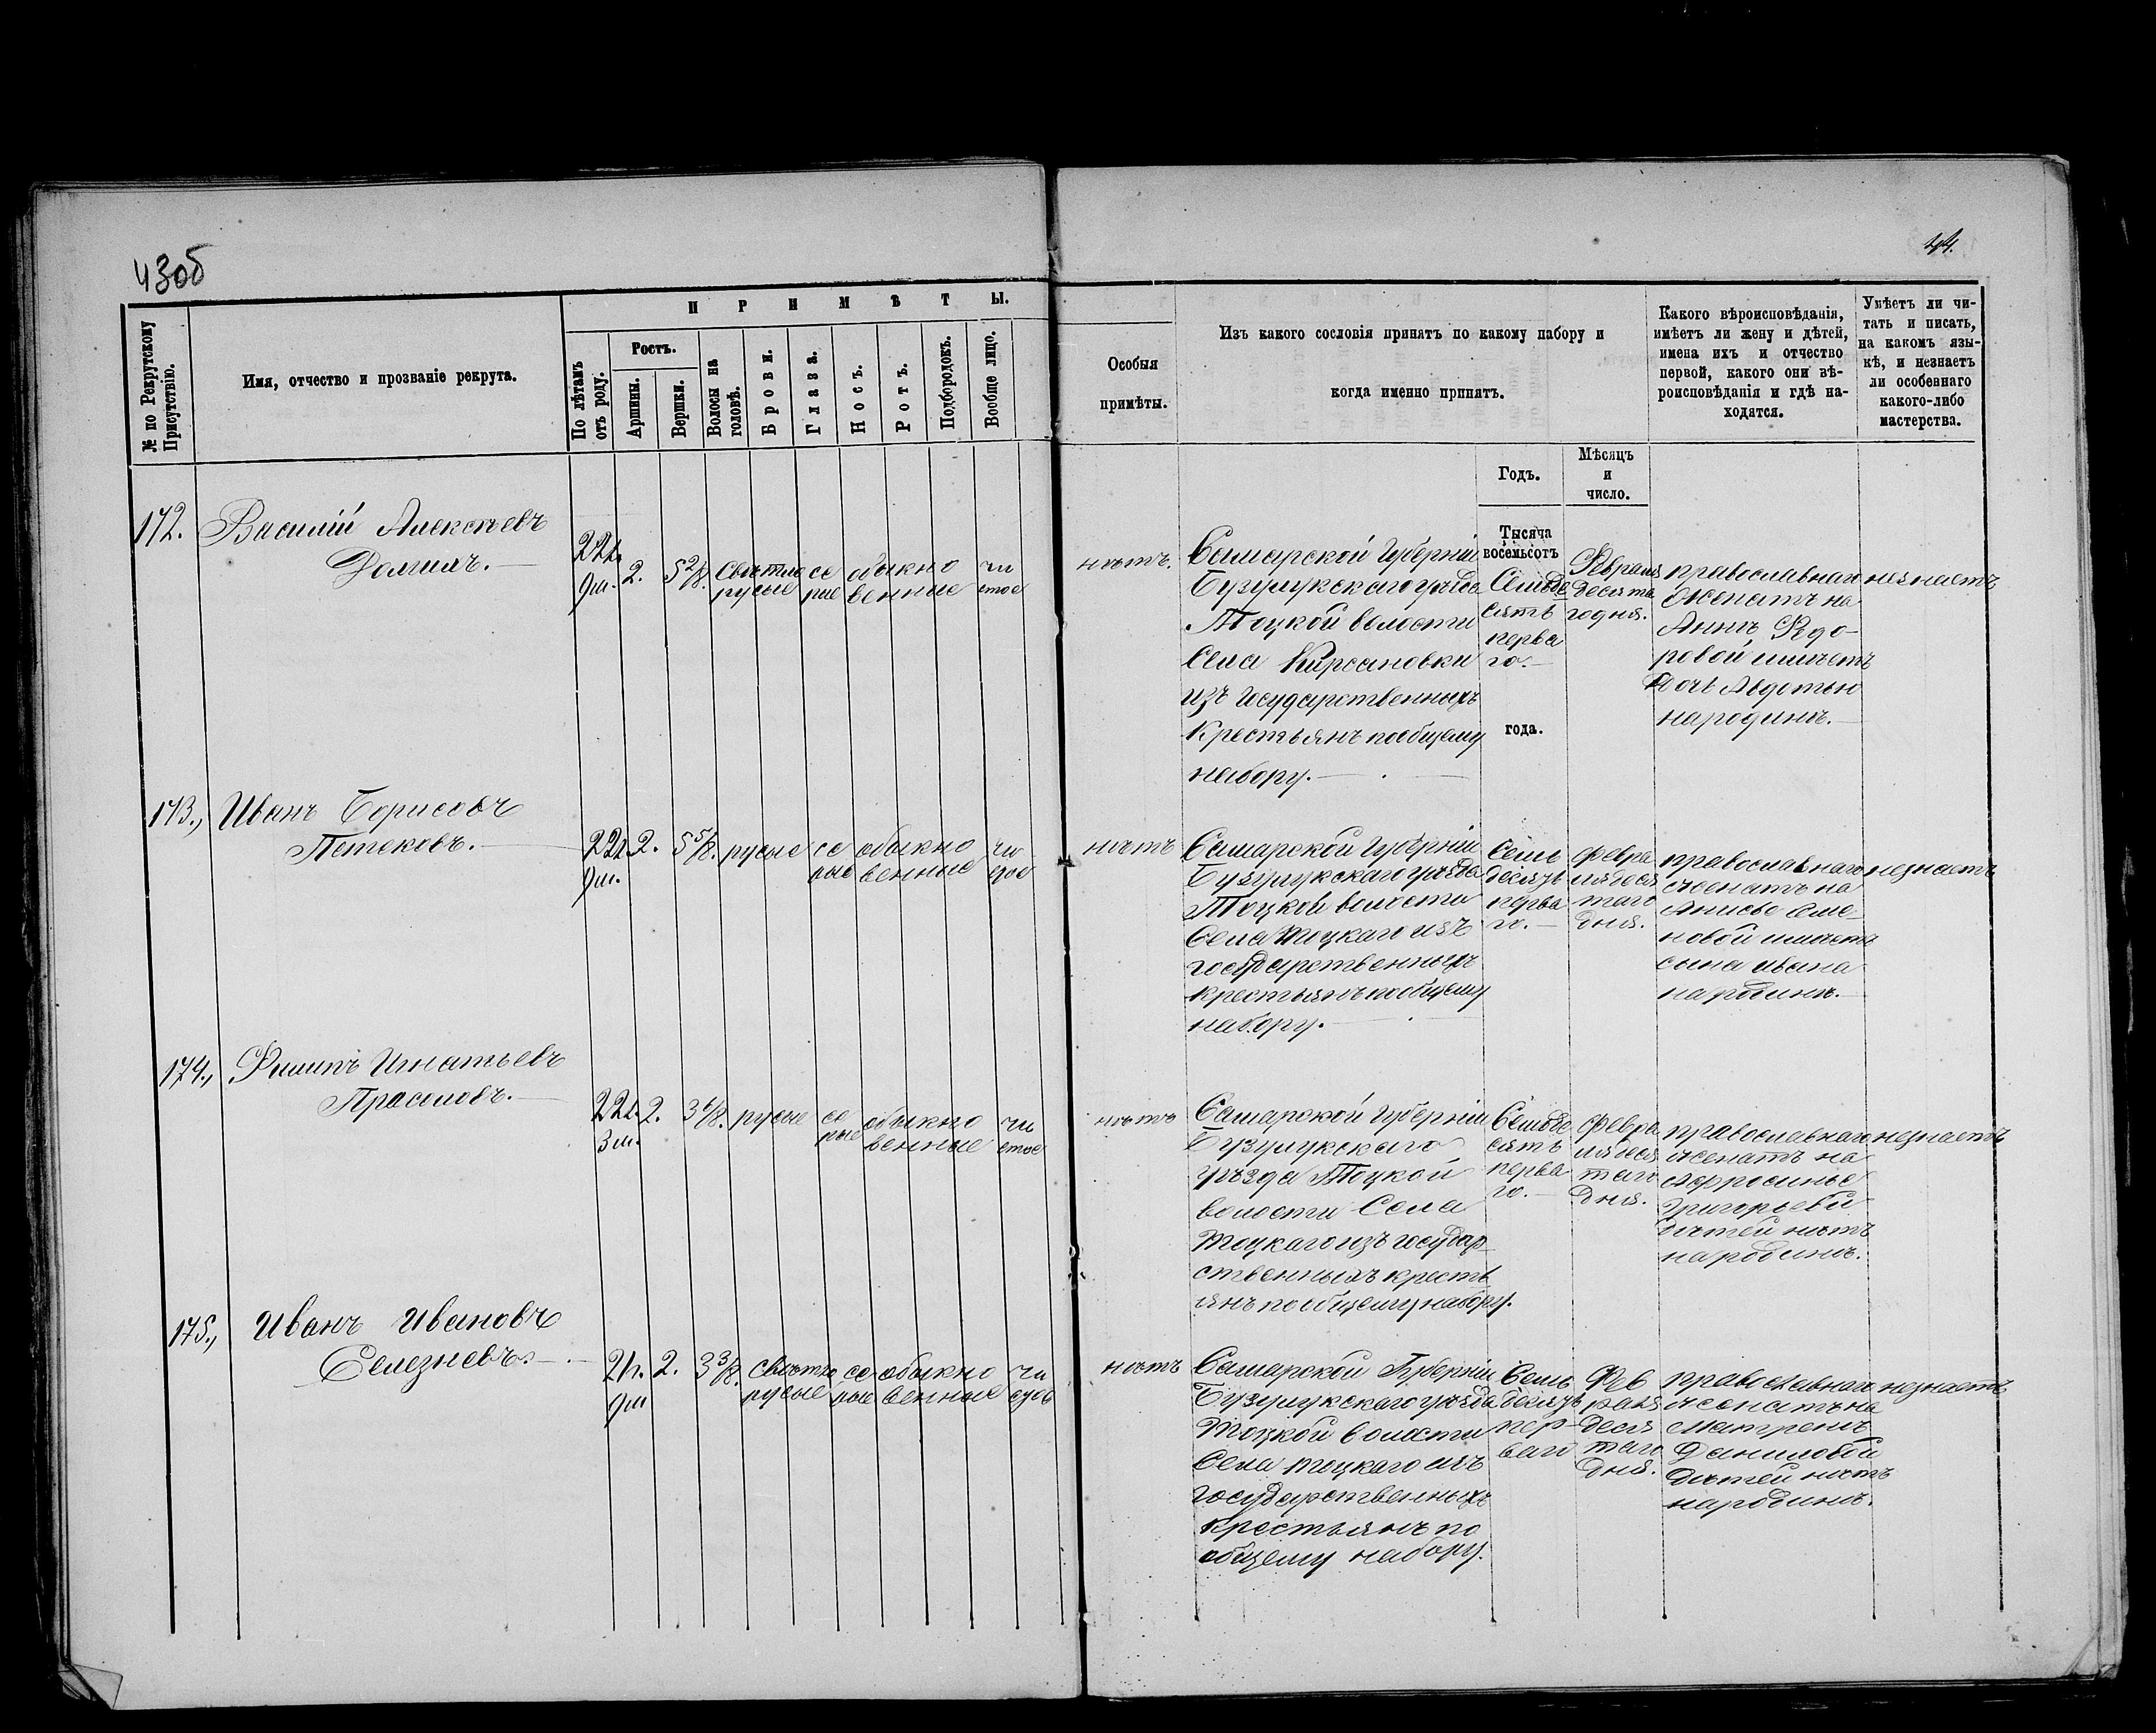 43об
44.
ПРИМѢТЫ.
№ по Рекрутскому Присутствію.
Имя, отчество и прозваніе рекрута.
По лѣтамъ отъ роду.
Ростъ.
Аршины.
Вершки.
Волосы на головѣ.
Брови.
Глаза.
Носъ.
Ротъ.
Подбородокъ.
Вообще лицо.
Особыя
примѣты.
Изъ какого сословія принятъ по какому набору и
когда именно принятъ.
Какого вѣроисповѣданія,
имѣетъ ли жену и дѣтей,
имена ихъ и отчество
первой, какого они вѣ-
роисповѣданія и гдѣ на-
ходятся.
Умѣетъ ли чи-
тать и писать,
на какомъ язы-
кѣ, и незнаетъ
ли особеннаго
какого-либо
мастерства.
Годъ.
Мѣсяцъ
и
число.
172.
Василій Алексѣевъ
Долгихъ.
22л.
9м.
2.
5 2/8.
Свѣтло
русые
се
рые
обыкно
венные
чи
стое
нѣтъ.
Самарской Губерніи
Бузулукскаго уѣзда
Тоцкой волости
Села Кирсановки
изъ государственныхъ
крестьянъ пообщему
набору.
Тысяча
восемьсотъ
Семьде
сятъ
перва
го.
года.
Февраля
десята
годня.
православнаго
женатъ на
Аннѣ Ѳедо-
ровой имѣетъ
дочь Авдотью
народинѣ.
незнаетъ
173.,
Иванъ Борисовъ
Петековъ.
22л.
9м.
2.
5 5/8.
русые
се
рые
обыкно
венные
чи
стое
нѣтъ
Самарской Губерніи
Бузулукскаго уѣзда
Тоцкой волости
Села Тоцкаго изъ
государственныхъ
крестьянъ пообщему
набору.
Семь
десятъ
перва
го.
февра
ля деся
таго
дня.
православнаго
женатъ на
Анисье Семе
новой имѣетъ
сына Ивана
народинѣ.
незнаетъ
174.,
Филипъ Игнатьевъ
Прасоловъ.
22л.
3м.
2.
русые
се
рые
обыкно
венные
чи
стое
нѣтъ
Самарской Губерніи
Бузулукскаго
уѣзда Тоцкой
волости Села
Тоцкаго изъ государ
ственныхъ кресть
янъ по общему набору.
Семьде
сятъ
перва
го.
февра
ля деся
таго
дня.
православнаго
женатъ на
Афросинье
Григорьевой
дѣтей нѣтъ
народинѣ.
незнаетъ
175.,
Иванъ Ивановъ
Селезневъ.
21л.
9м
2.
3 3/8.
Свѣтло
русые
се
рые
обыкно
венные
чи
стое
нѣтъ
Самарской Губерніи
Бузулукскаго уѣзда
Тоцкой волости
Села Тоцкаго изъ
государственныхъ
крестьянъ по
общему набору.
Семь
десятъ
пер-
ваго
Фев
раля
деся
таго
дня.
православнаго
женатъ на
Матренѣ
Даниловой
дѣтей нѣтъ
народинѣ.
незнаетъ